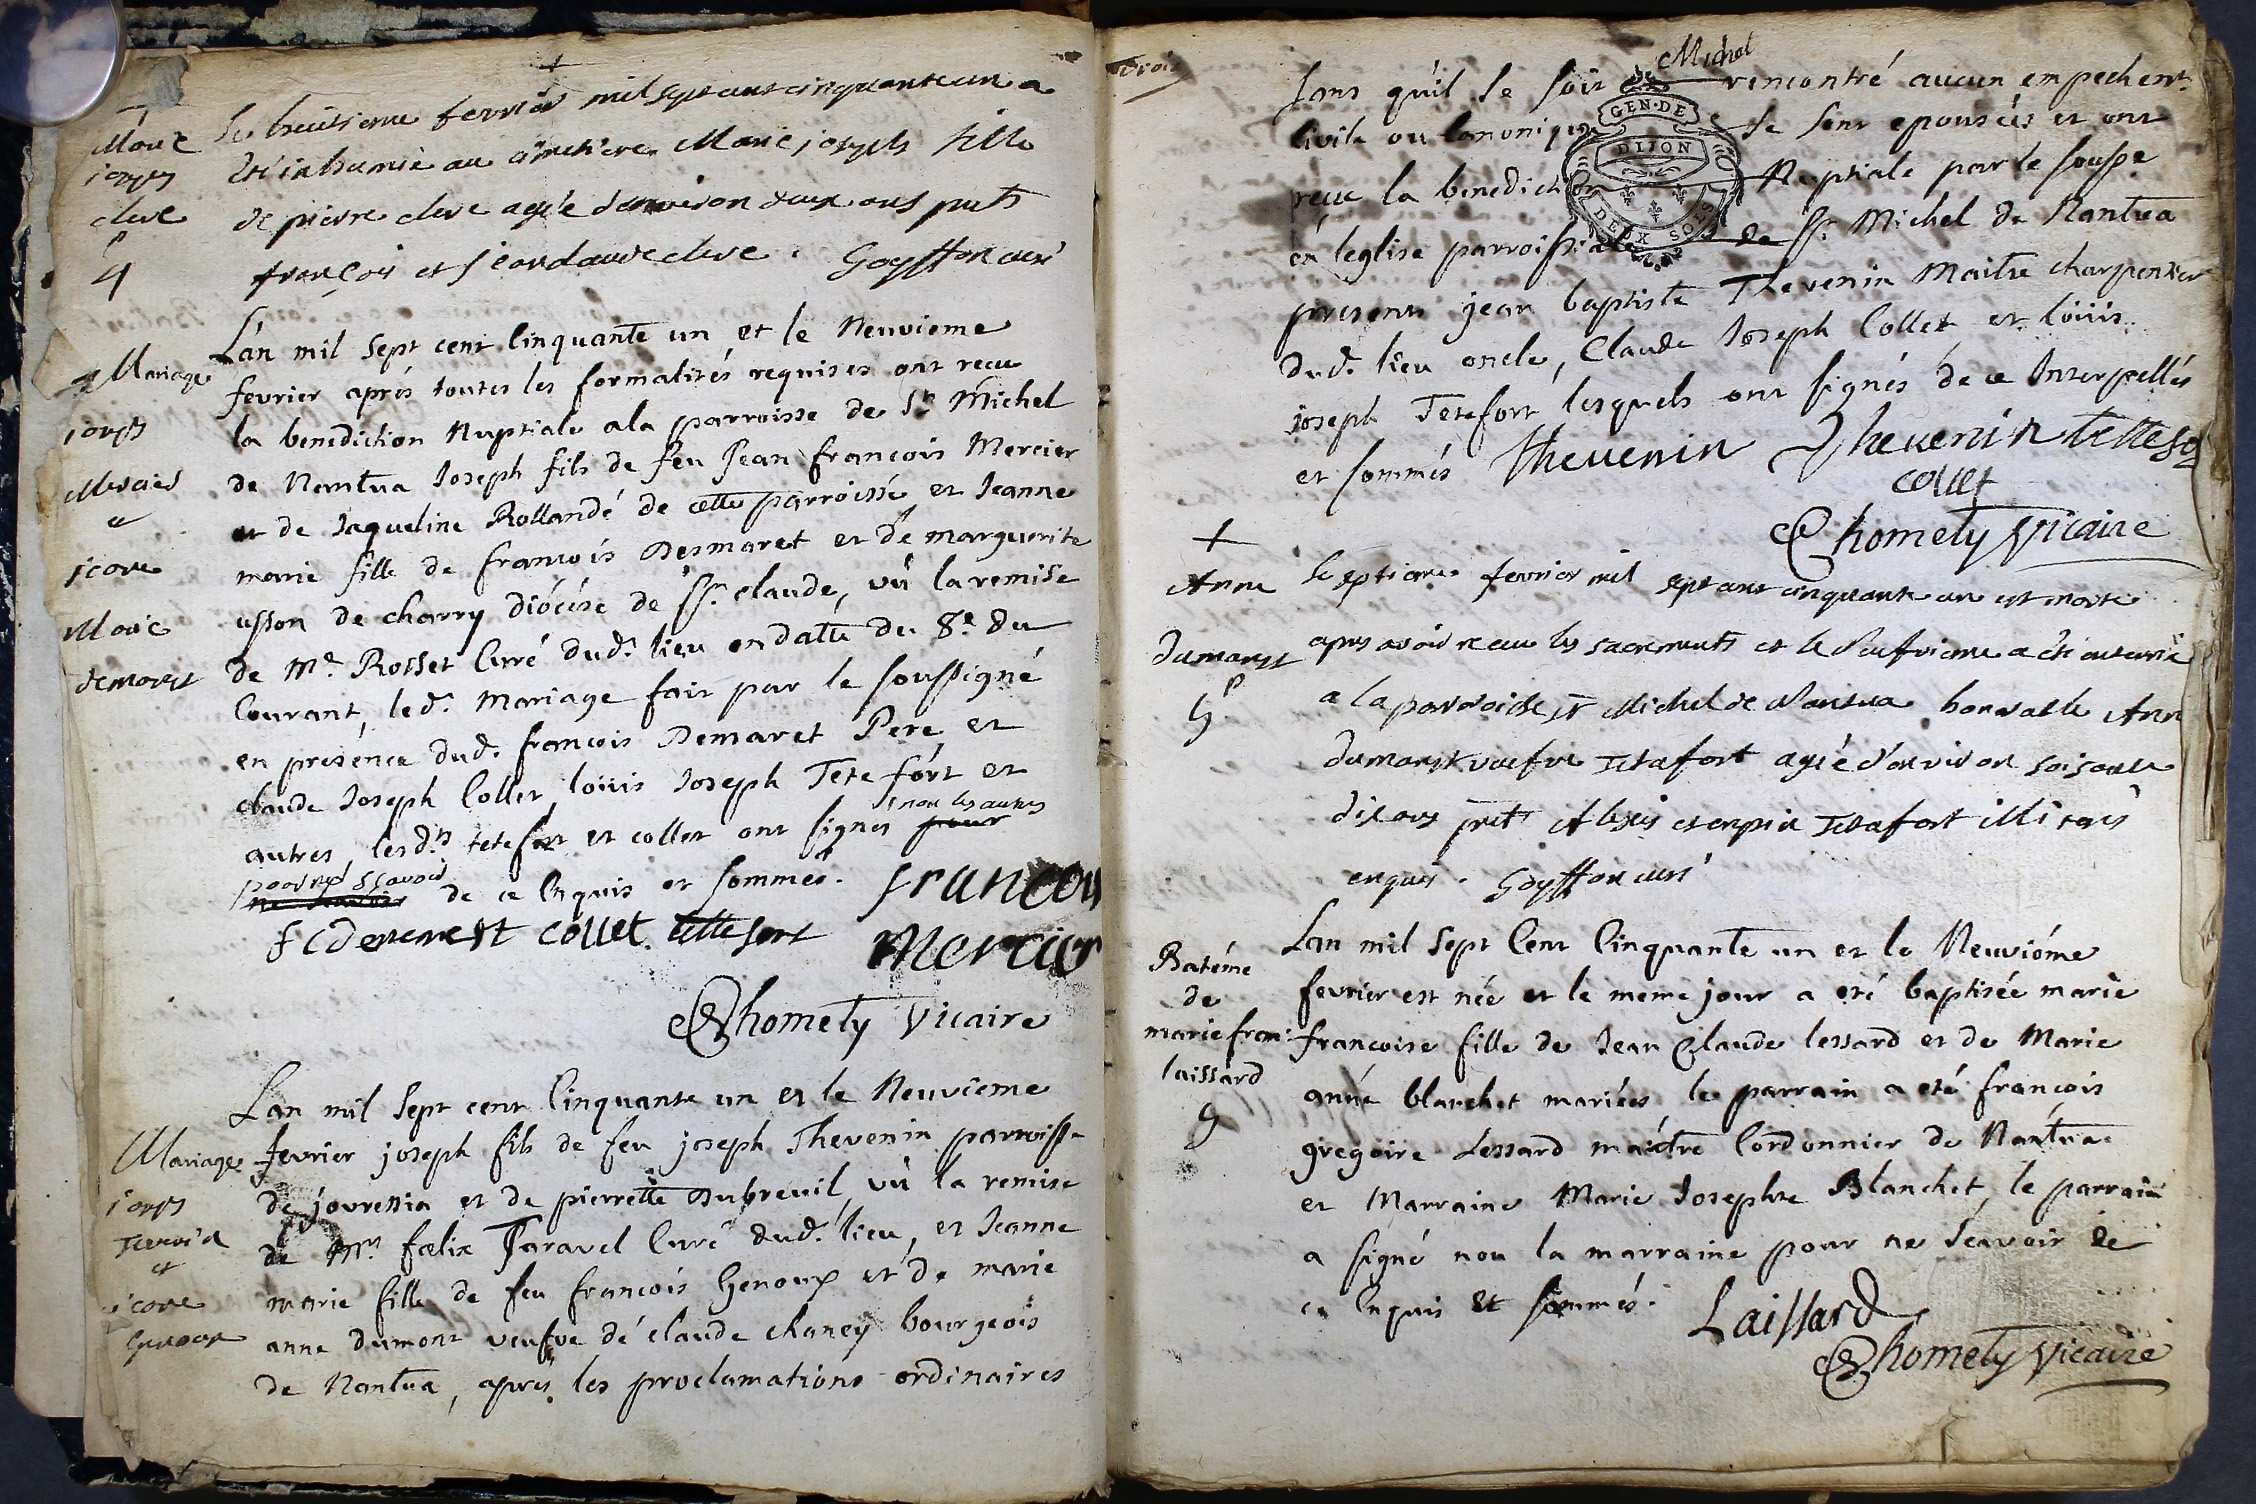 +
Marie
joseph
clerc
4
Le huitieme fevrier mil sept cent cinquante un a
été inhumée au cimetiere Marie joseph fille
de pierre clerc agée d'environ deux ans pnts
françois et jean claude clerc . Goyffon curé
Mariage
joseph
Mercier
et
jeane
Marie
demaret
L'an mil sept cent Cinquante un et le Neuvieme
fevrier aprés toutes les formalités requises ont recu
la benediction Nuptiale a la parroisse de St Michel
de Nantua Joseph fils de feu Jean françois Mercier
et de Jaqueline Rollandé de cette parroisse et Jeanne
marie fille de francois Desmaret et de marguerite
usson de charry diócése de St. claude, vû la remise
de Mre. Rosset Curé dud. lieu en datte du 8e. du
Courant, led. mariage fait par le soussigné
en presence dud. francois Demaret Pere et
claude Joseph Collet, loüis Joseph Tete fort et
autres, lesd.ts tetefort et collet ont signés pour
non les autres
pour ne sçavoir
ne scavoir de ce Enquis et sommés.
francois
fc demarest collet. tettefort
mercier
Chomety Vicaire
Mariage
joseph
Tevenin
et
jeane
Genoux
L'an mil Sept cent Cinquante un et le Neuvieme
fevrier joseph fils de feu joseph Thevenin parroisse
de jovressia et de pierrette Dubreuil, vû la remise
de Mre. fœlix Taravel Curé dud. lieu, et Jeanne
marie fille de feu francois Genoux et de marie
anne dumont veufve de claude chaney bourgeois
de Nantua, apres les proclamations ordinaires
trois
Michel
GEN·DE
DIJON
DEUX SOLS
sans qu'il se soit rencontré aucun empechemt.
Civile ou Canonique se sont epousées et ont
reçue la benediction Nuptiale par le souss.
en leglise parroissiale de St. Michel de Nantua
presents jean baptiste Thevenin maitre charpentier
dud. lieu oncle, Claude Joseph Collet et loüis
joseph Tetefort, lesquels ont signés de ce Interpellés
et sommés Thevenin Thevenin tettefo
collet
Chomety Vicaire
+
Anne
dumarest
5
Le septieme fevrier mil sept cent cinquante un est morte
apres avoir receu les sacrements et le neufvieme a été enterrée
a la parroisse St Michel de Nantua honorable Anne
dumarest veufve Tetafort agée d'environ soisante
dix ans pnts Alexis et crepin Tetafort
enquis . Goyffon curé
Batéme
de
marie fran:
laissard
5
L'an mil Sept Cent Cinquante un et le Neuviéme
fevrier est née et le meme jour a eté baptisée marie
francoise fille de Jean Claude lessard et de Marie
anne blanchet mariées, le parrain a eté francois
gregoire Lessard maitre Cordonnier de Nantua
et Marraine Marie Josephte Blanchet, le parrain
a signé non la marraine pour ne Scavoir de
ce Enquis et sommés.
Laissard
Chomety Vicaire